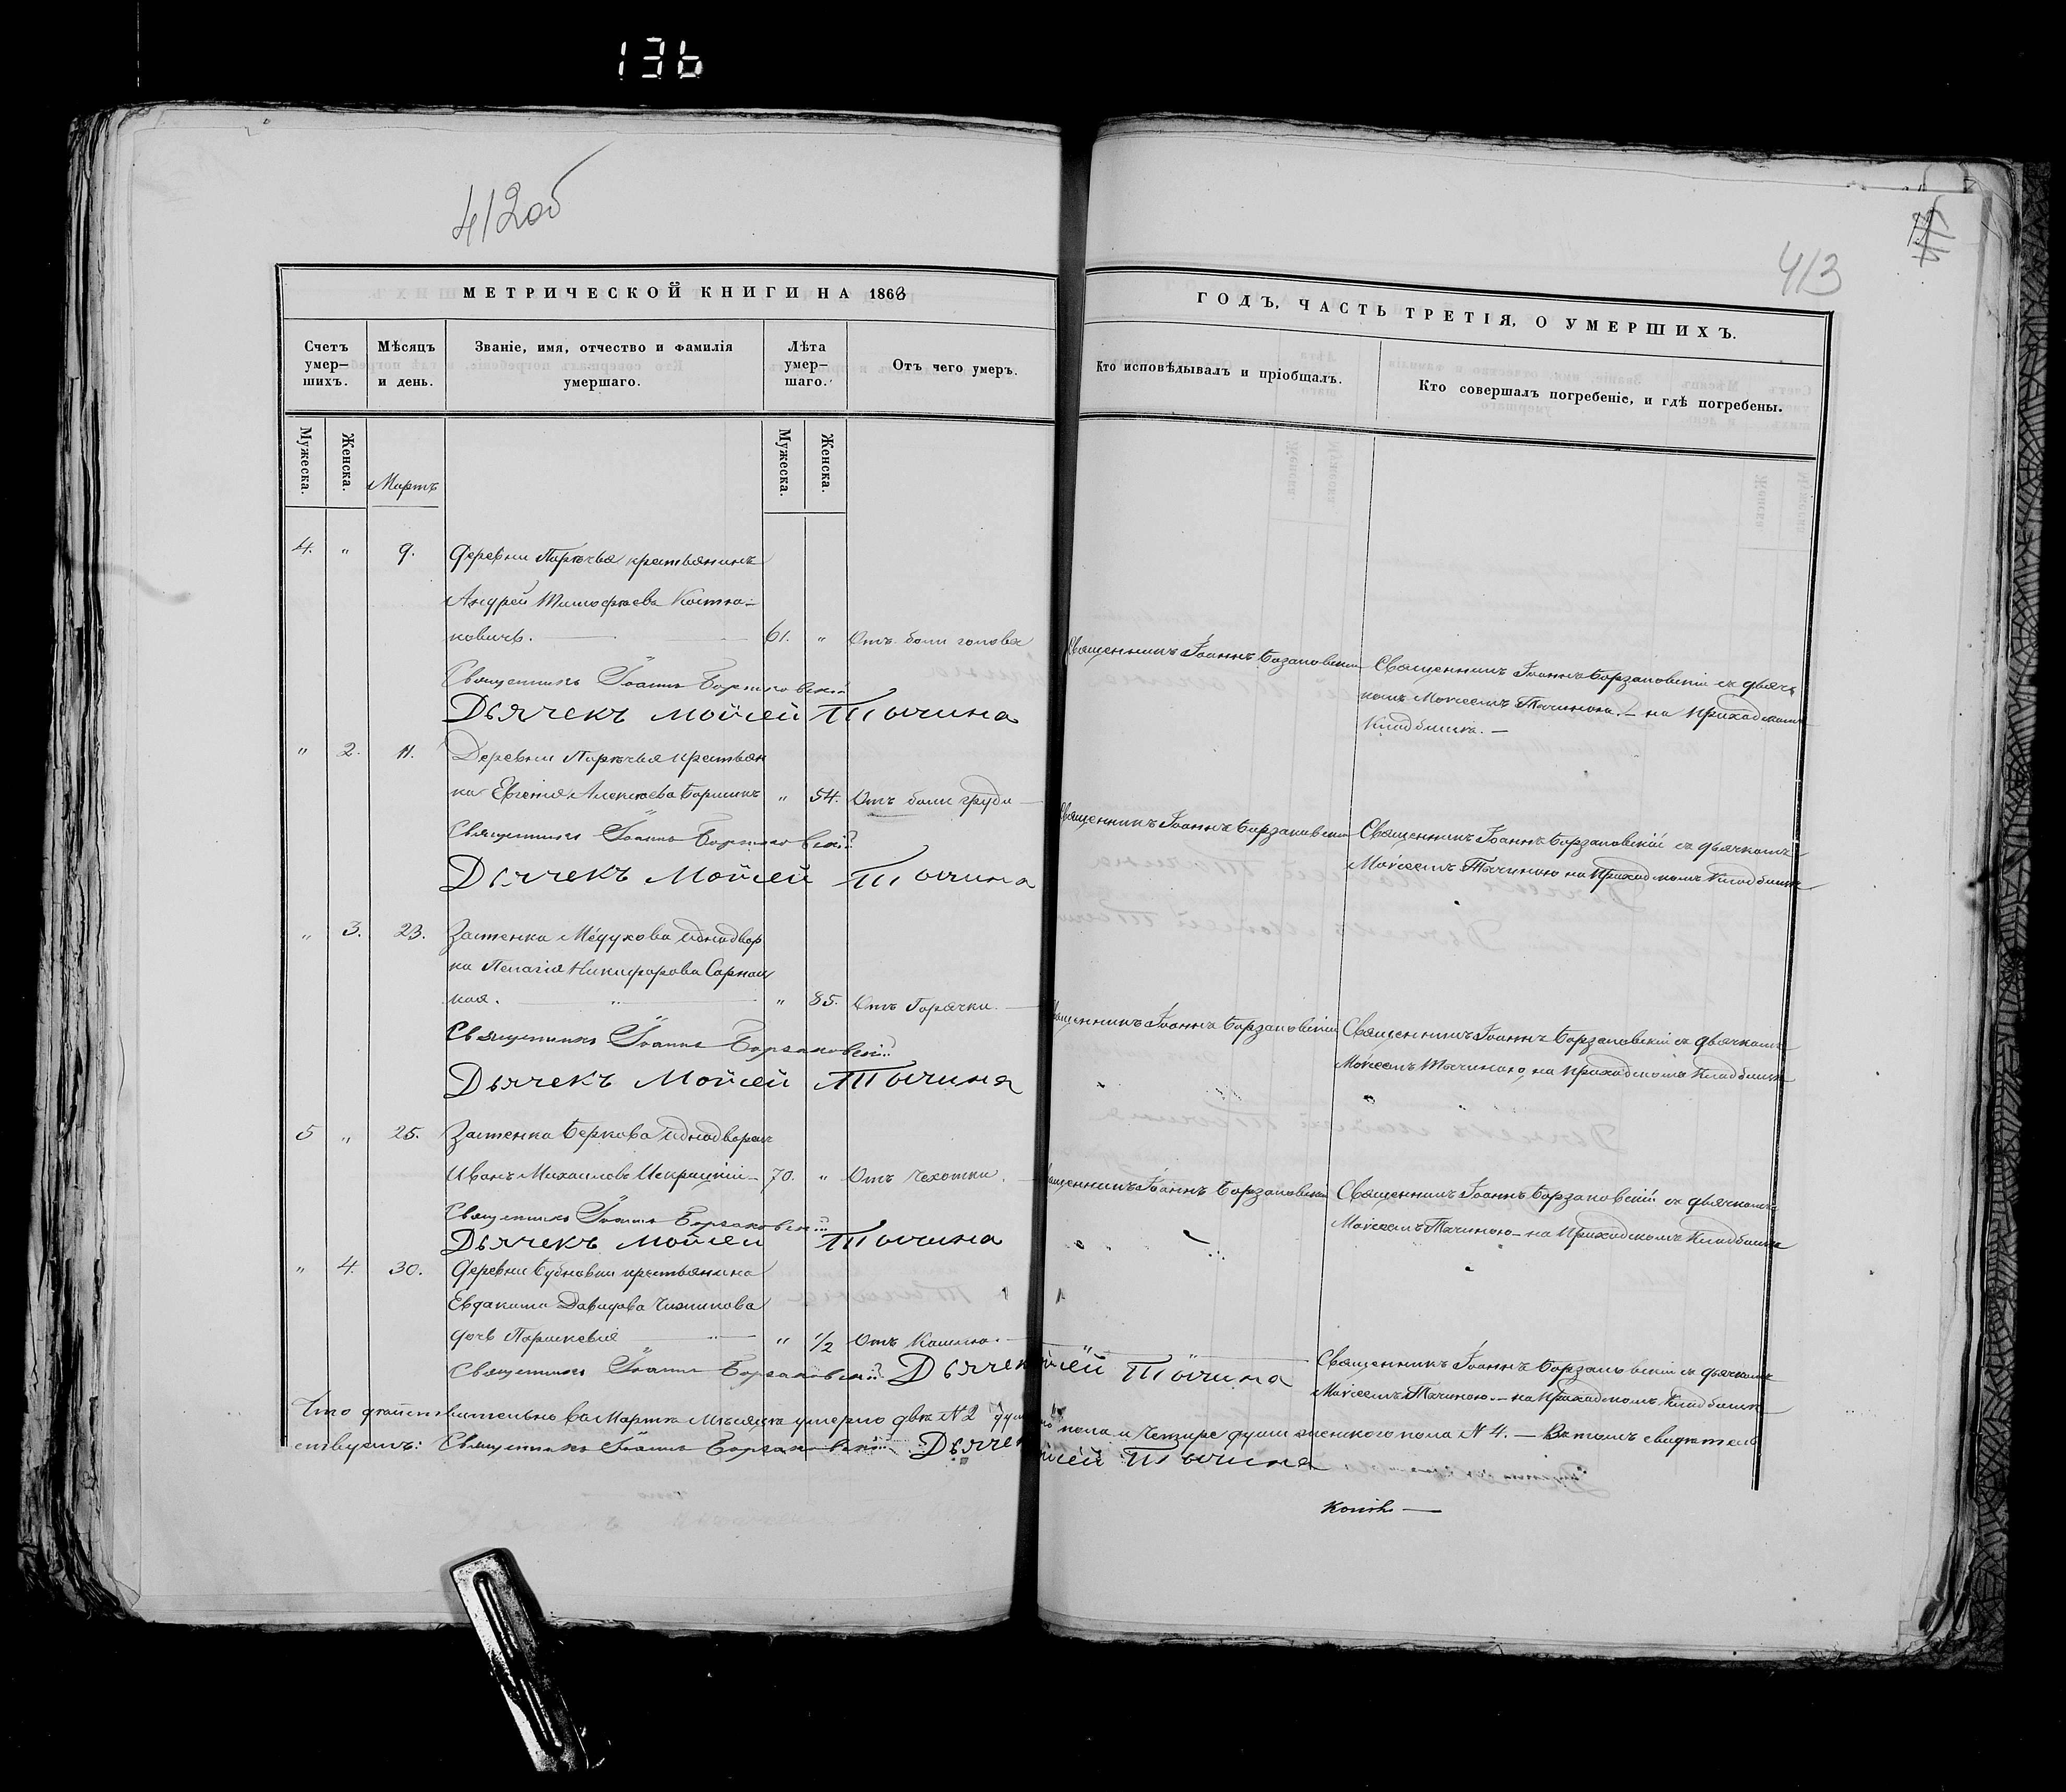 136
412об
413
МЕТРИЧЕСКОЙ КНИГИ НА 1868
ГОДЪ, ЧАСТЬ ТРЕТІЯ, О УМЕРШИХЪ.
Счетъ умер— шихъ.
Мѣсяцъ и день.
Званіе, имя, отчество и фамилія умершаго.
Лѣта умер— шаго.
Отъ чего умеръ.
Кто исповѣдывалъ и пріобщалъ.
Кто совершалъ погребеніе, и гдѣ погребены.
Мужеска.
Женска.
Мартъ
Мужеска.
Женска.
4. " 9. Деревни крестьянинъ
Андрей Тимофѣева Костю-
ковичъ. 61. " Отъ боли головы
Священникъ Іоаннъ Борзаковскій
Священникъ Іоаннъ Борзаковскій съ дьяч
комъ Моисеемъ Тычиною. — на Приходскомъ
Кладбищѣ. —
Священникъ Іоаннъ Борзаковскій
Дьячекъ Мойсей Тычина
" 2. 11. Деревни крестьян
ка Евгенія Алексѣева " 54. Отъ боли груди
Священникъ Іоаннъ Борзаковскій
Священникъ Іоаннъ Борзаковскій съ дьячкомъ
Моисеемъ Тычиною на Приходскомъ Кладбищѣ
Священникъ Іоаннъ Борзаковскій
Дьячекъ Мойсей Тычина
" 3. 23. Застенка Мѣдухова однодвор
ка Пелагія Никифорова
кая. " 85. Отъ Горячки.
Священникъ Іоаннъ Борзаковскій
Священникъ Іоаннъ Борзаковскій съ дьячкомъ
Моисеемъ Тычиною, на Приходскомъ Кладбищѣ
Священникъ Іоаннъ Борзаковскій
Дьячекъ Мойсей Тычина
5 " 25. Застенка Беркова однодворец
Иванъ Михаиловъ Искрицкій — 70. " Отъ Чахотки.
Священникъ Іоаннъ Борзаковскій
Священникъ Іоаннъ Борзаковскій съ дьячкомъ
Моисеемъ Тычиною — на Приходскомъ Кладбищѣ
Священникъ Іоаннъ Борзаковскій
Дьячекъ Мойсей Тычина
" 4. 30. Деревни Бубновки крестьянина
Евдакима Давидова
дочь Параскевія " 1/2 Отъ Кашлю.
Священникъ Іоаннъ Борзаковскій съ дьячкомъ
Моисеемъ Тычиною. — на Приходскомъ Кладбищѣ
Священникъ Іоаннъ Борзаковскій Дьячек сей Тычина
Что дѣйствительно въ Мартѣ Мѣсяцѣ умерло двѣ № 2 пола и Четыре души женского пола № 4. — Въ томъ свидѣтель
ствуемъ: Священникъ Іоаннъ Борзаковскій Дьячек сей Тычина